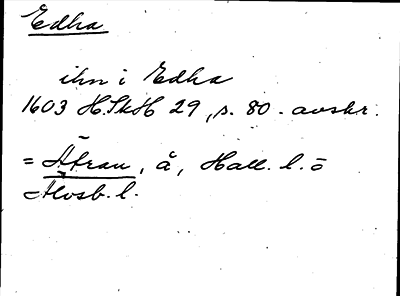 Edha
ihn i Edha
1603 H.SkH 29, s. 80. avskr.
= Ätran, å, Hall. l. o
Älvsb. l.